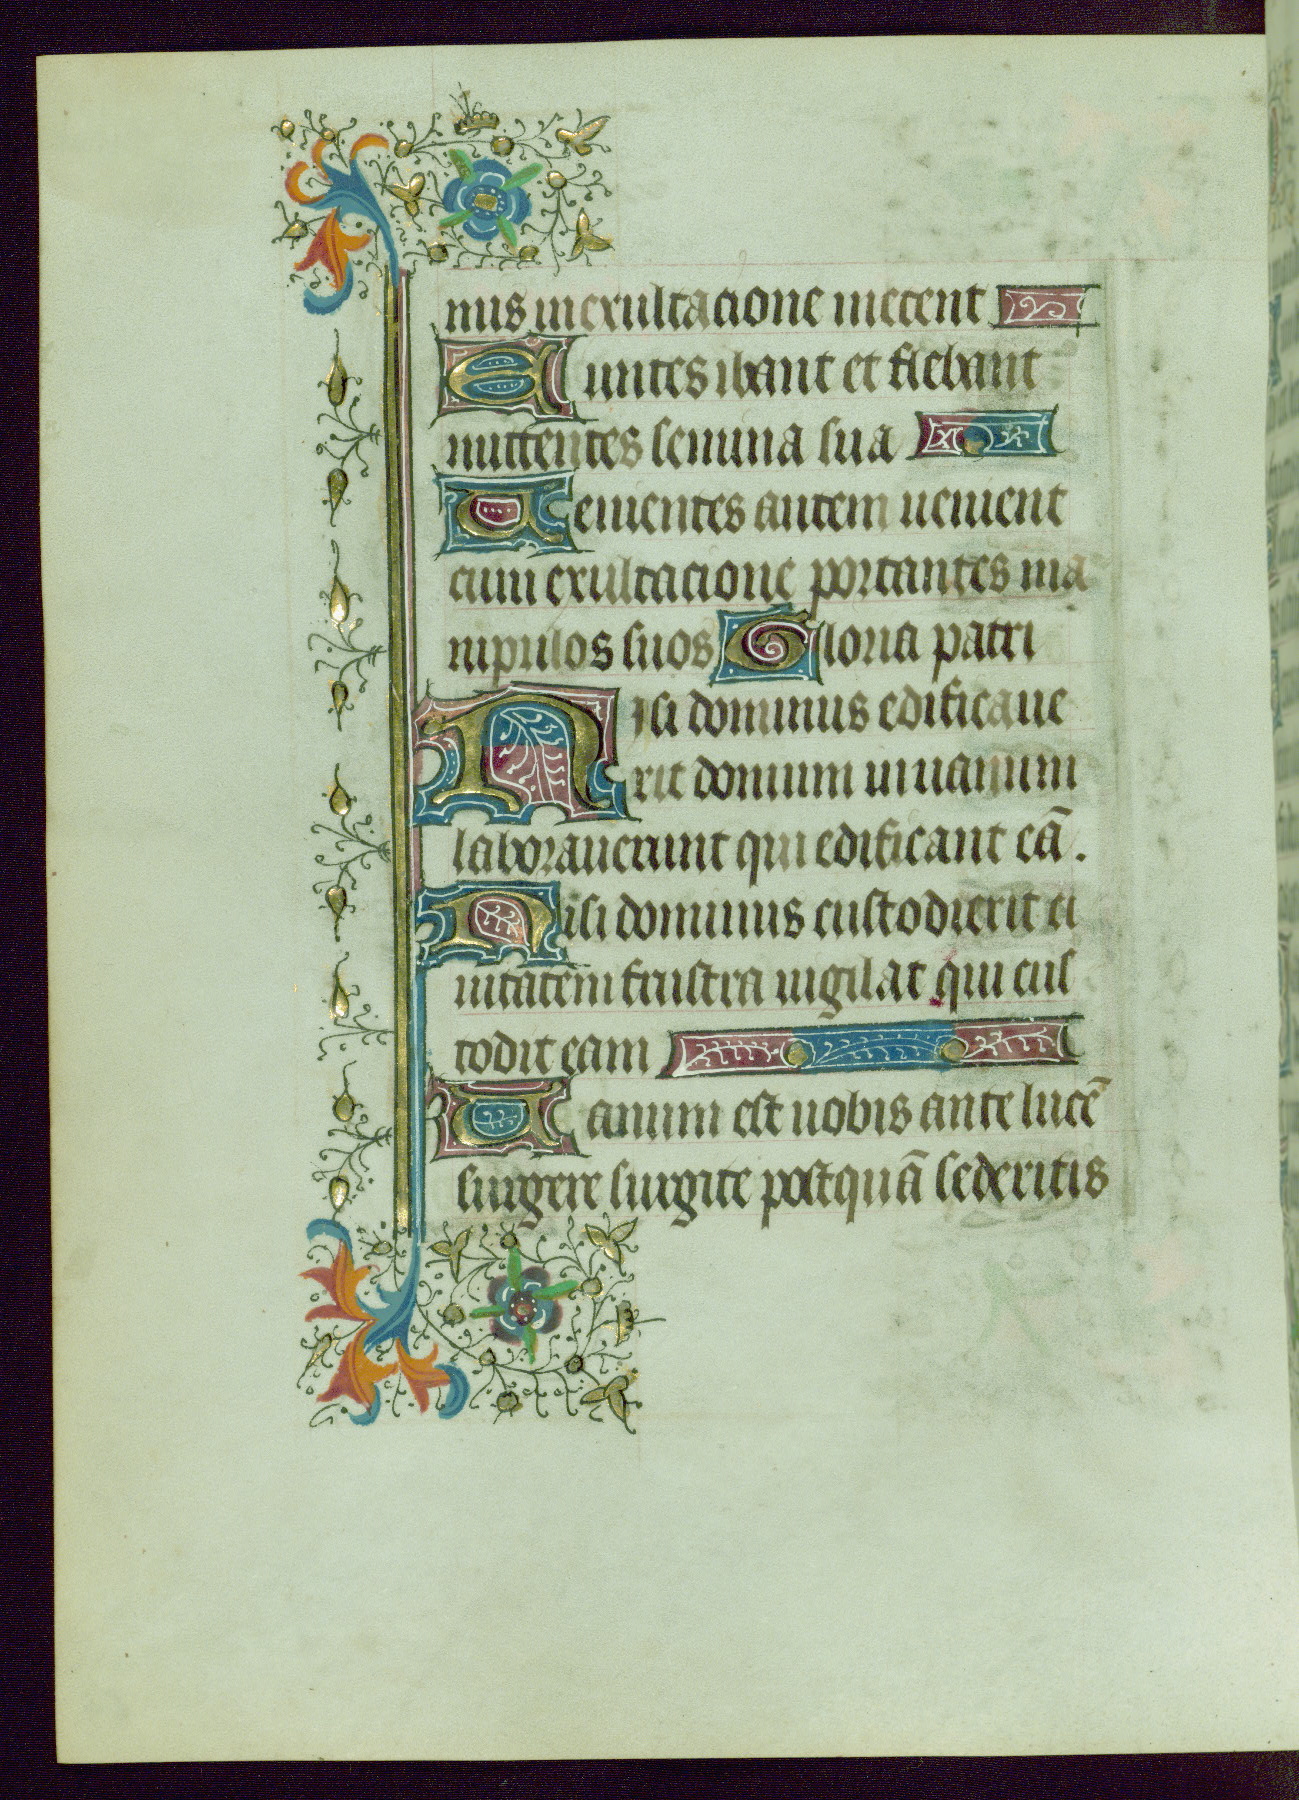 mis in exultacione metent
Euntes ibant et flebant
mittentes semina sua
Uenientes autem uenient
cum exultacione portantes ma
nipulos suos Gloria patri
Nisi dominus edificaue
rit domum in uanum
laborauerunt qui edificant eā.
Nisi dominus custodierit ci
uitatem frustra uigilat qui cus
todit eam
Uanum est uobis ante lucē
surgere surgite postquā sederitis